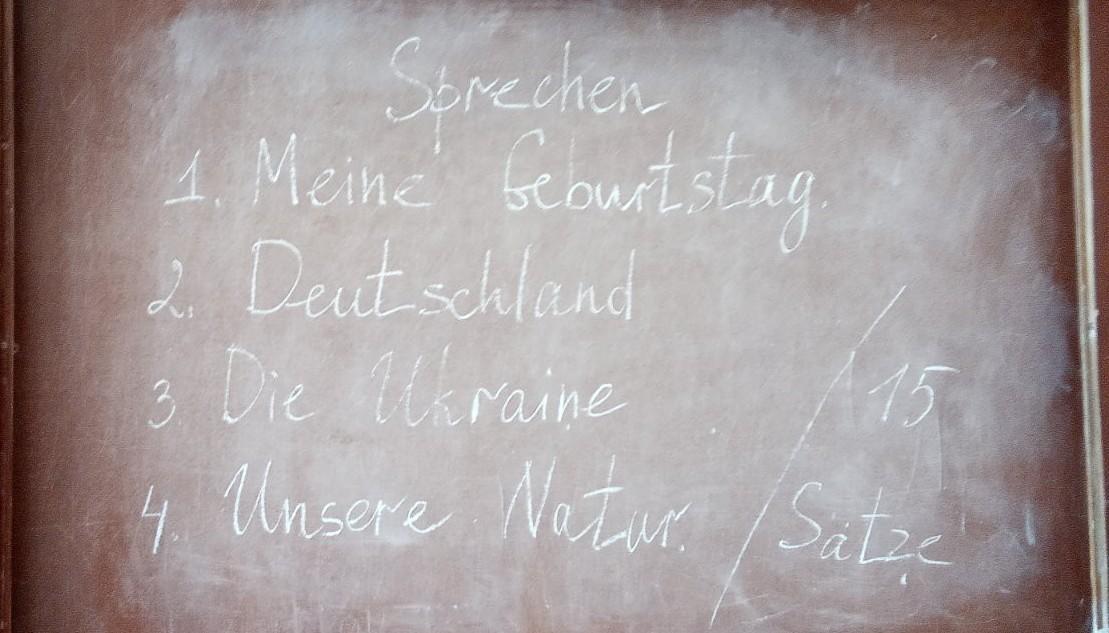 Sprechen
1. Meine Geburtstag.
2. Deutschland
3. Die Ukraine
4. Unsere Natur.
/ 15
Sätze